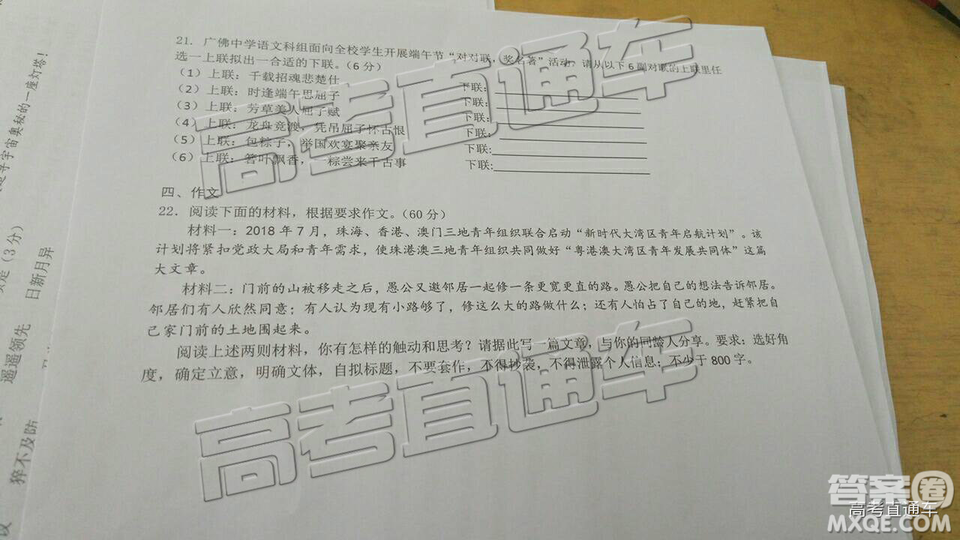 21. 广佛中学语文科组面向全校学生开展端午节“对对联，奖名著”活动，请从以下6副对联的上联里任
选一上联拟出一合适的下联。(6分)
(1) 上联：千载招魂悲楚仕 下联:
(2) 上联：时逢端午思屈子 下联:
(3) 上联：芳草美人屈子赋 下联:
(4) 上联：龙舟竞渡，凭吊屈子怀古恨 下联:
(5) 上联：包粽子，举国欢宴聚亲友 下联:
(6) 上联：箬叶飘香， 粽尝来千古事 下联:
四、作文
22. 阅读下面的材料，根据要求作文。(60分)
材料一：2018年7月，珠海、香港、澳门三地青年组织联合启动“新时代大湾区青年启航计划”。该
计划将紧扣党政大局和青年需求，使珠港澳三地青年组织共同做好“粤港澳大湾区青年发展共同体”这篇
大文章。
材料二：门前的山被移走之后，愚公又邀邻居一起修一条更宽更直的路。愚公把自己的想法告诉邻居。
邻居们有人欣然同意；有人认为现有小路够了，修这么大的路做什么；还有人怕占了自己的地，赶紧把自
己家门前的土地围起来。
阅读上述两则材料，你有怎样的触动和思考？请据此写一篇文章，与你的同龄人分享。要求：选好角
度，确定立意，明确文体，自拟标题，不要套作，不得抄袭，不得泄露个人信息；不少于800字。
寻宇宙奥秘的一座灯塔！
(3分)
日新月异
遥遥领先
猝不及防
高考直通车
高考直通车
答案圈
高考直通车
MXQE.COM